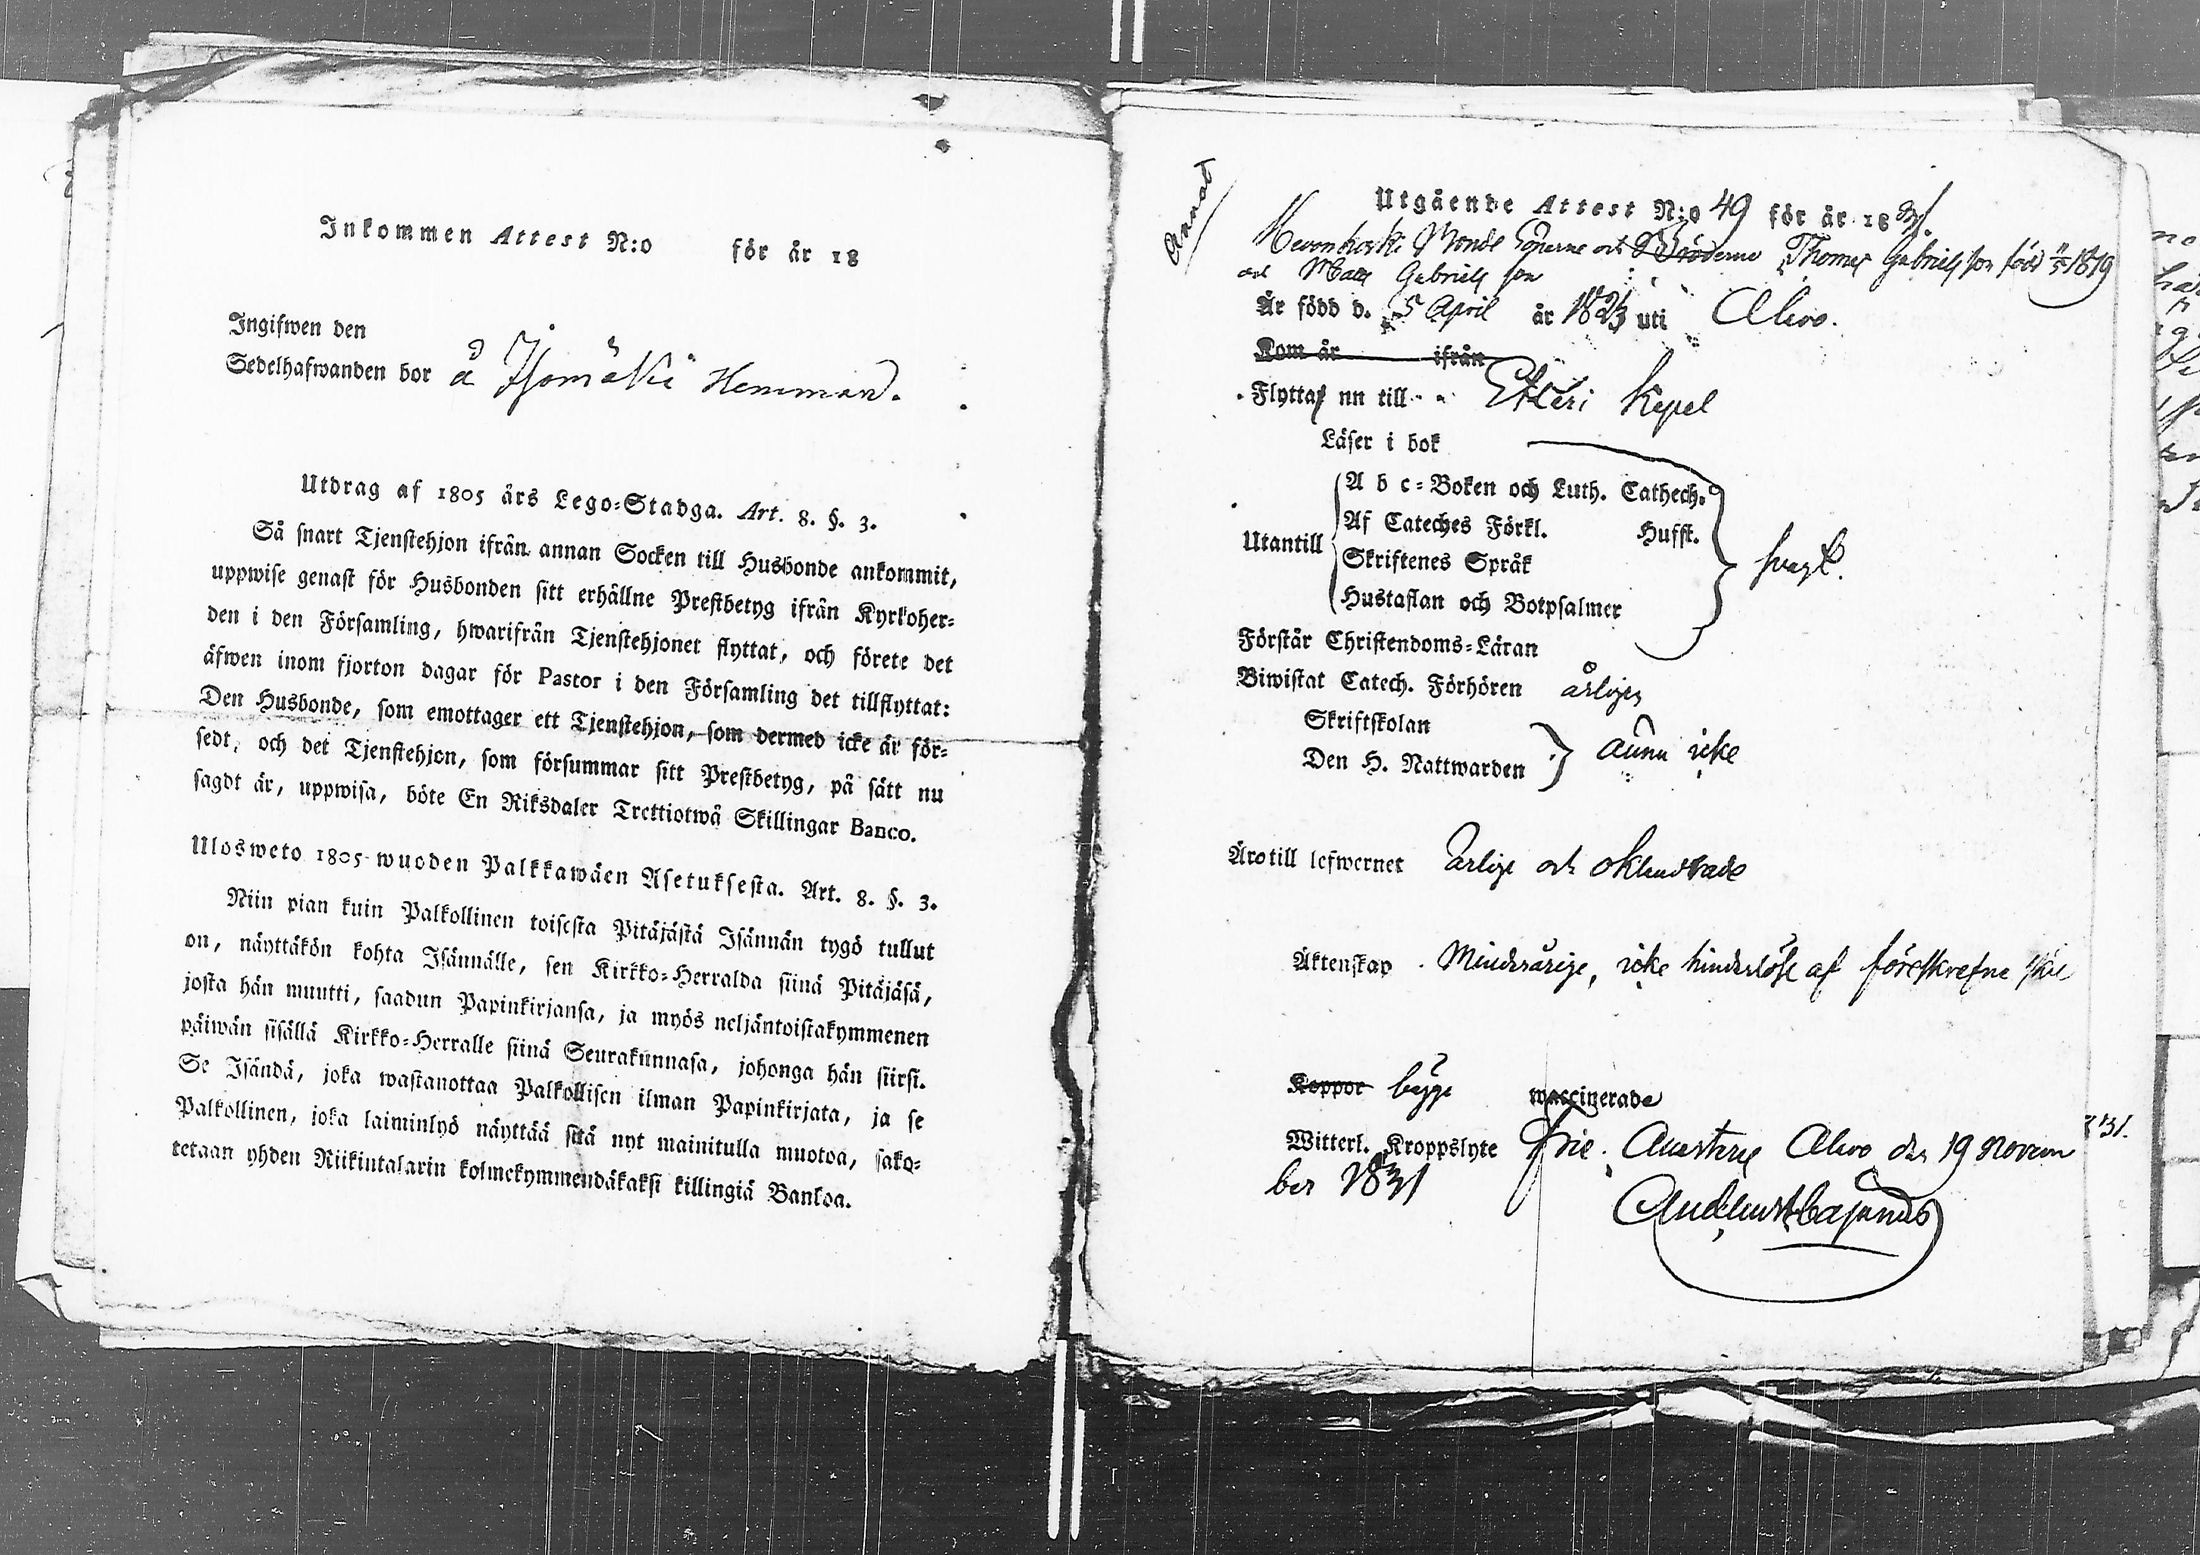 Inkommen Attest N:o för år 18
Ingifwen den
Sedelhafwanden bor å Isomäki Hemman.
Utdrag af 1805 års Lego-Stadga. Art. 8. §. 3.
Så snart Tjenstehjon ifrån annan Socken till Husbonde ankommit,
uppwise genast för Husbonden sitt erhållne Prestbetyg ifrån Kyrkoher-
den i den Församling, hwarifrån Tjenstehjonet flyttat, och förete det
äfwen inom fjorton dagar för Pastor i den Församling det tillflyttat:
Den Husbonde, som emottager ett Tjenstehjon, som dermed icke är för-
sedt, och det Tjenstehjon, som försummar sitt Prestbetyg, på sätt nu
sagdt är, uppwisa, böte En Riksdaler Trettiotwå Skillingar Banco.
Ulosweto 1805 wuoden Palkkawäen Asetuksesta. Art. 8. §. 3.
Niin pian kuin Palkollinen toisesta Pitäjästä Isännän tygö tullut
on, näyttäkön kohta Isännälle, sen Kirkko-Herralda siinä Pitäjäsä,
josta hän muutti, saadun Papinkirjansa, ja myös neljäntoistakymmenen
päiwän sisällä Kirkko-Herralle siinä Seurakunnasa, johonga hän siirsi.
Se Isändä, joka wastanottaa Palkollisen ilman Papinkirjata, ja se
Palkollinen, joka laiminlyö näyttää sitä nyt mainitulla muotoa, sako-
tetaan yhden Riikintalarin kolmekymmendäkaksi killingiä Bankoa.
Annat
Utgående Attest N:o 49 för år 1831.
Sönerne och Bröderne Thomas Gabriels son född 11/5 1819
och Matts Gabriels son
Är född d. 5 April år 1823 uti Alavo.
Kom år ifrån
Flytta nn till Etseri Kapel
Läser i bok
Utantill
A b c-Boken och Luth. Cathech.
Af Cateches Förkl. Hufst.
Skriftenes Språk
Hustaflan och Botpsalmer
svagt.
Förstår Christendoms-Läran
Biwistat Catech. Förhören årligen
Skriftskolan
Den H. Nattwarden
ännu icke
Äro till lefwernet ärlige och oklandrade
Äktenskap Minderårige, icke hinderlöse af föreskrefne skäl
Koppor begge waccinerade
Witterl. Kroppslyte frie. Alavo den 19 Novem
ber 1831